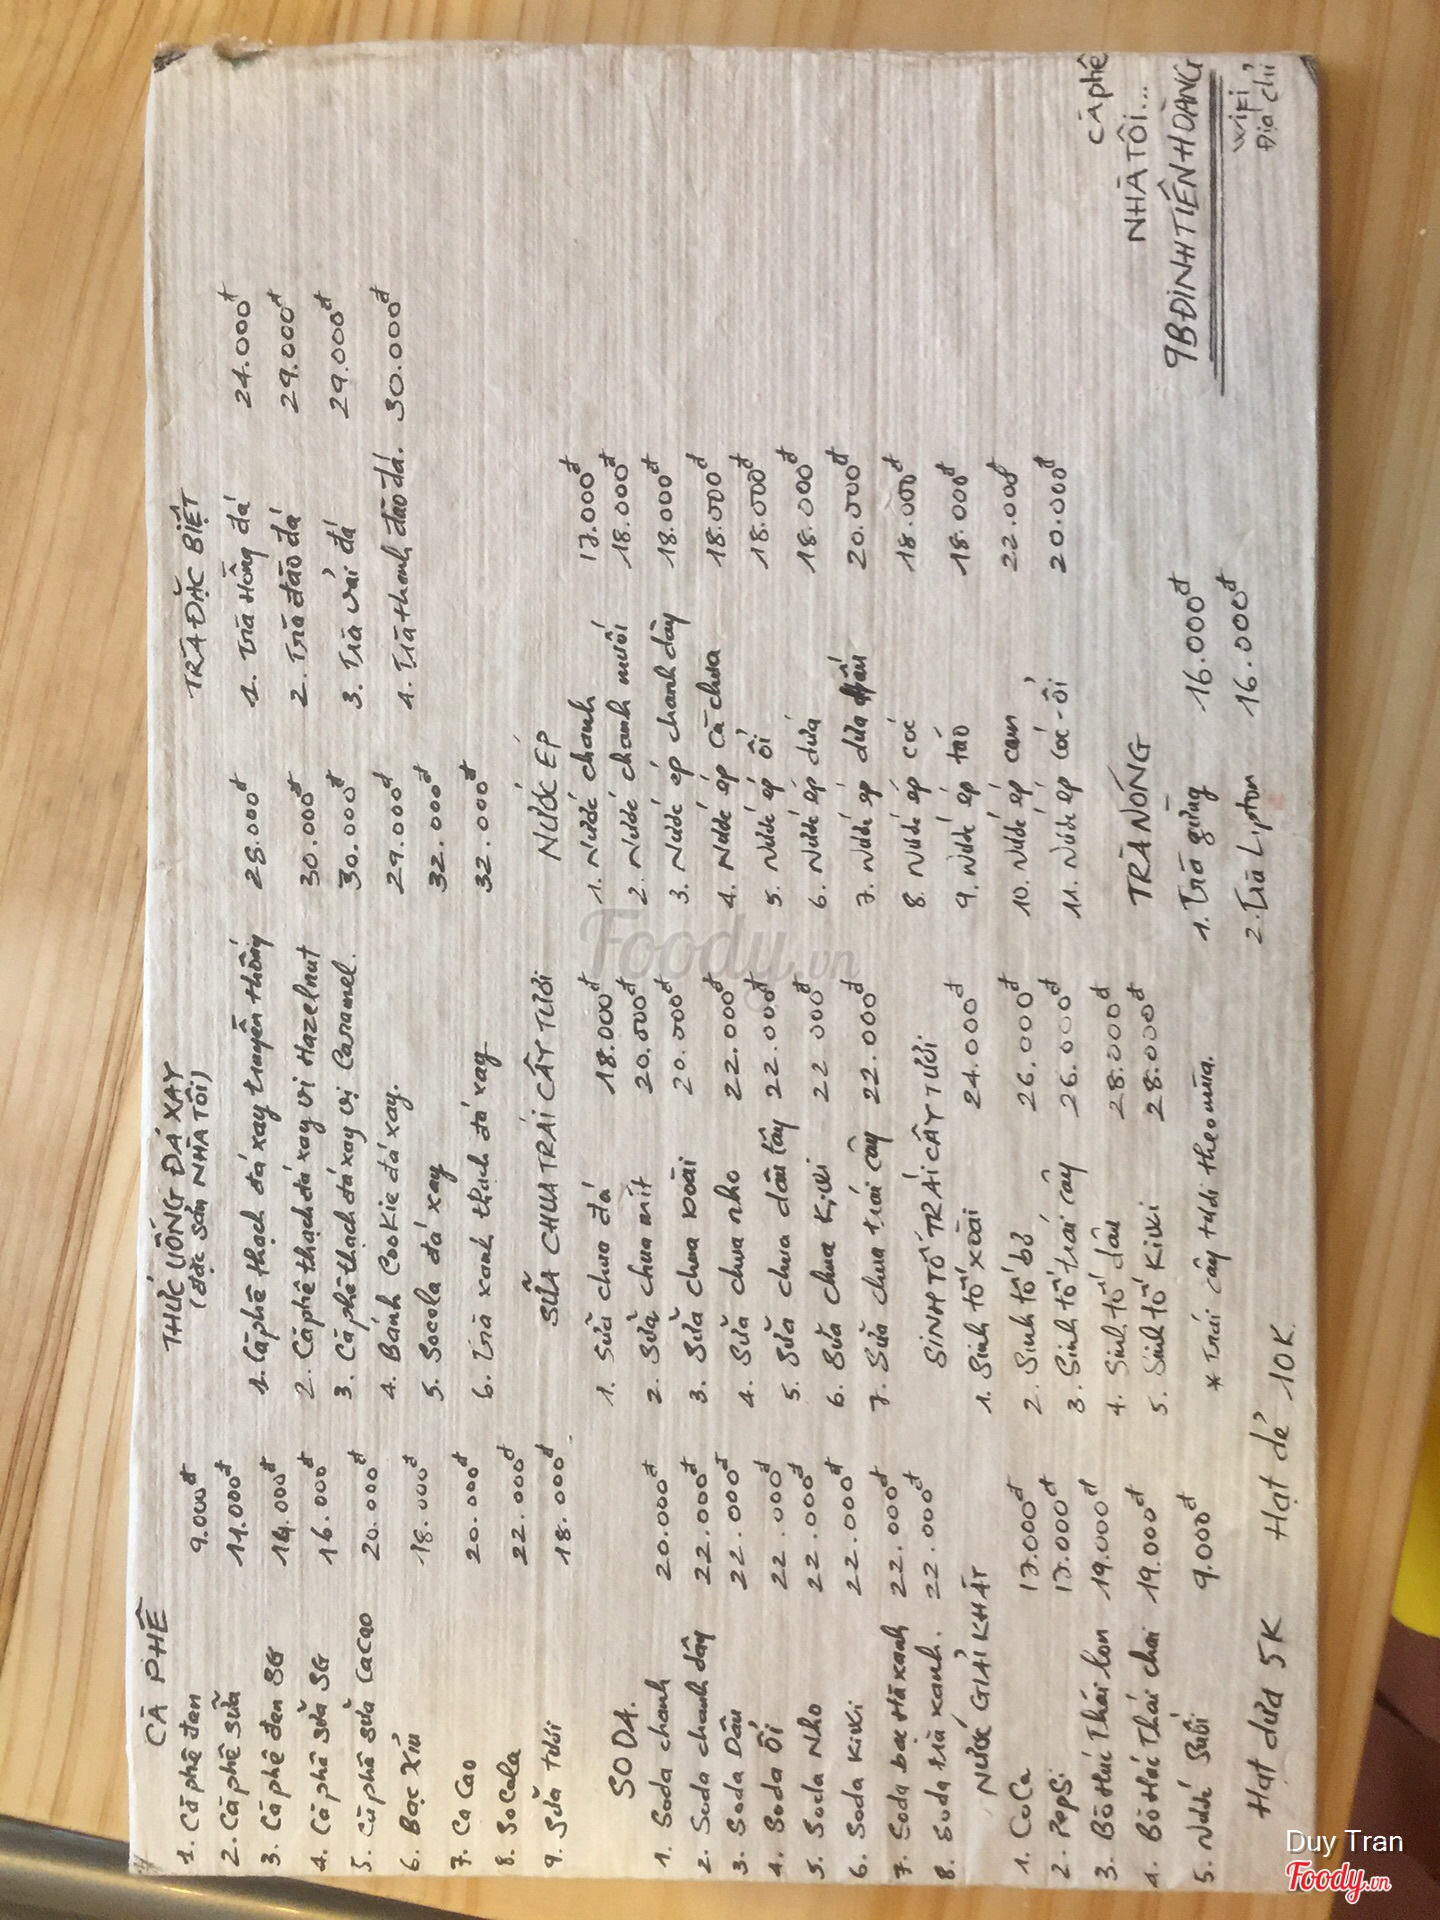 CÀ PHÊ
1. Cà phê đen 9.000đ
2. Cà phê sữa 11.000đ
3. Cà phê đen SG 14.000đ
4. Cà phê sữa SG 16.000đ
5. Cà phê sữa Cacao 20.000đ
6. Bạc Xỉu 18.000đ
7. Ca Cao 20.000đ
8. Socola 22.000đ
9. Sữa tươi 18.000đ
SODA.
1. Soda chanh 20.000đ
2. Soda chanh dây 22.000đ
3. Soda Dâu 22.000đ
4. Soda ổi 22.000đ
5. Soda Nho 22.000đ
6. Soda Kiwi 22.000đ
7. Soda bạc Hà xanh 22.000đ
8. Soda trà xanh. 22.000đ
NƯỚC GIẢI KHÁT
1. CoCa 17.000đ
2. Pepsi 17.000đ
3. Bò Húc Thái lon 19.000đ
4. Bò Húc Thái chai 19.000đ
5. Nước Suối 9.000đ
Hạt dưa 5K Hạt dẻ 10K.
THỨC UỐNG ĐÁ XAY
(đặc sản NHÀ TÔI)
1. Cà phê thạch đá xay truyền thống 28.000đ
2. Cà phê thạch đá xay vị Hazelnut 30.000đ
3. Cà phê thạch đá xay vị Caramel. 30.000đ
4. Bánh Cookie đá xay. 29.000đ
5. Socola đá xay 32.000đ
6. Trà xanh thạch đá xay 32.000đ
SỮA CHUA TRÁI CÂY TƯƠI
1. Sữa chua đá 18.000đ
2. Sữa chua mít 20.000đ
3. Sữa chua xoài 20.000đ
4. Sữa chua nho 22.000đ
5. Sữa chua dâu tây 22.000đ
6. Sữa chua Kiwi 22.000đ
7. Sữa chua trái cây 22.000đ
SINH TỐ TRÁI CÂY TƯƠI
1. Sinh tố xoài 24.000đ
2. Sinh tố bơ 26.000đ
3. Sinh tố trái cây 26.000đ
4. Sinh tố dâu 28.000đ
5. Sinh tố Kiwi 28.000đ
* Trái cây tươi theo mùa.
TRÀ ĐẶC BIỆT
1. Trà Hồng đá 24.000đ
2. Trà đào đá 29.000đ
3. Trà vải đá 29.000đ
4. Trà thanh đào đá. 30.000đ
NƯỚC ÉP
1. Nước chanh 17.000đ
2. Nước chanh muối 18.000đ
3. Nước ép chanh dây 18.000đ
4. Nước ép cà chua 18.000đ
5. Nước ép ổi 18.000đ
6. Nước ép dứa 18.000đ
7. Nước ép dưa hấu 20.000đ
8. Nước ép cóc 18.000đ
9. Nước ép táo 18.000đ
10. Nước ép cam 22.000đ
11. Nước ép cóc - ổi 20.000đ
TRÀ NÓNG
1. Trà gừng 16.000đ
2. Trà Lipton 16.000đ
CÀ PHÊ
NHÀ TÔI...
9B ĐINH TIÊN HOÀNG
WIFI
Địa chỉ
Foody.vn
Duy Tran
Foody.vn